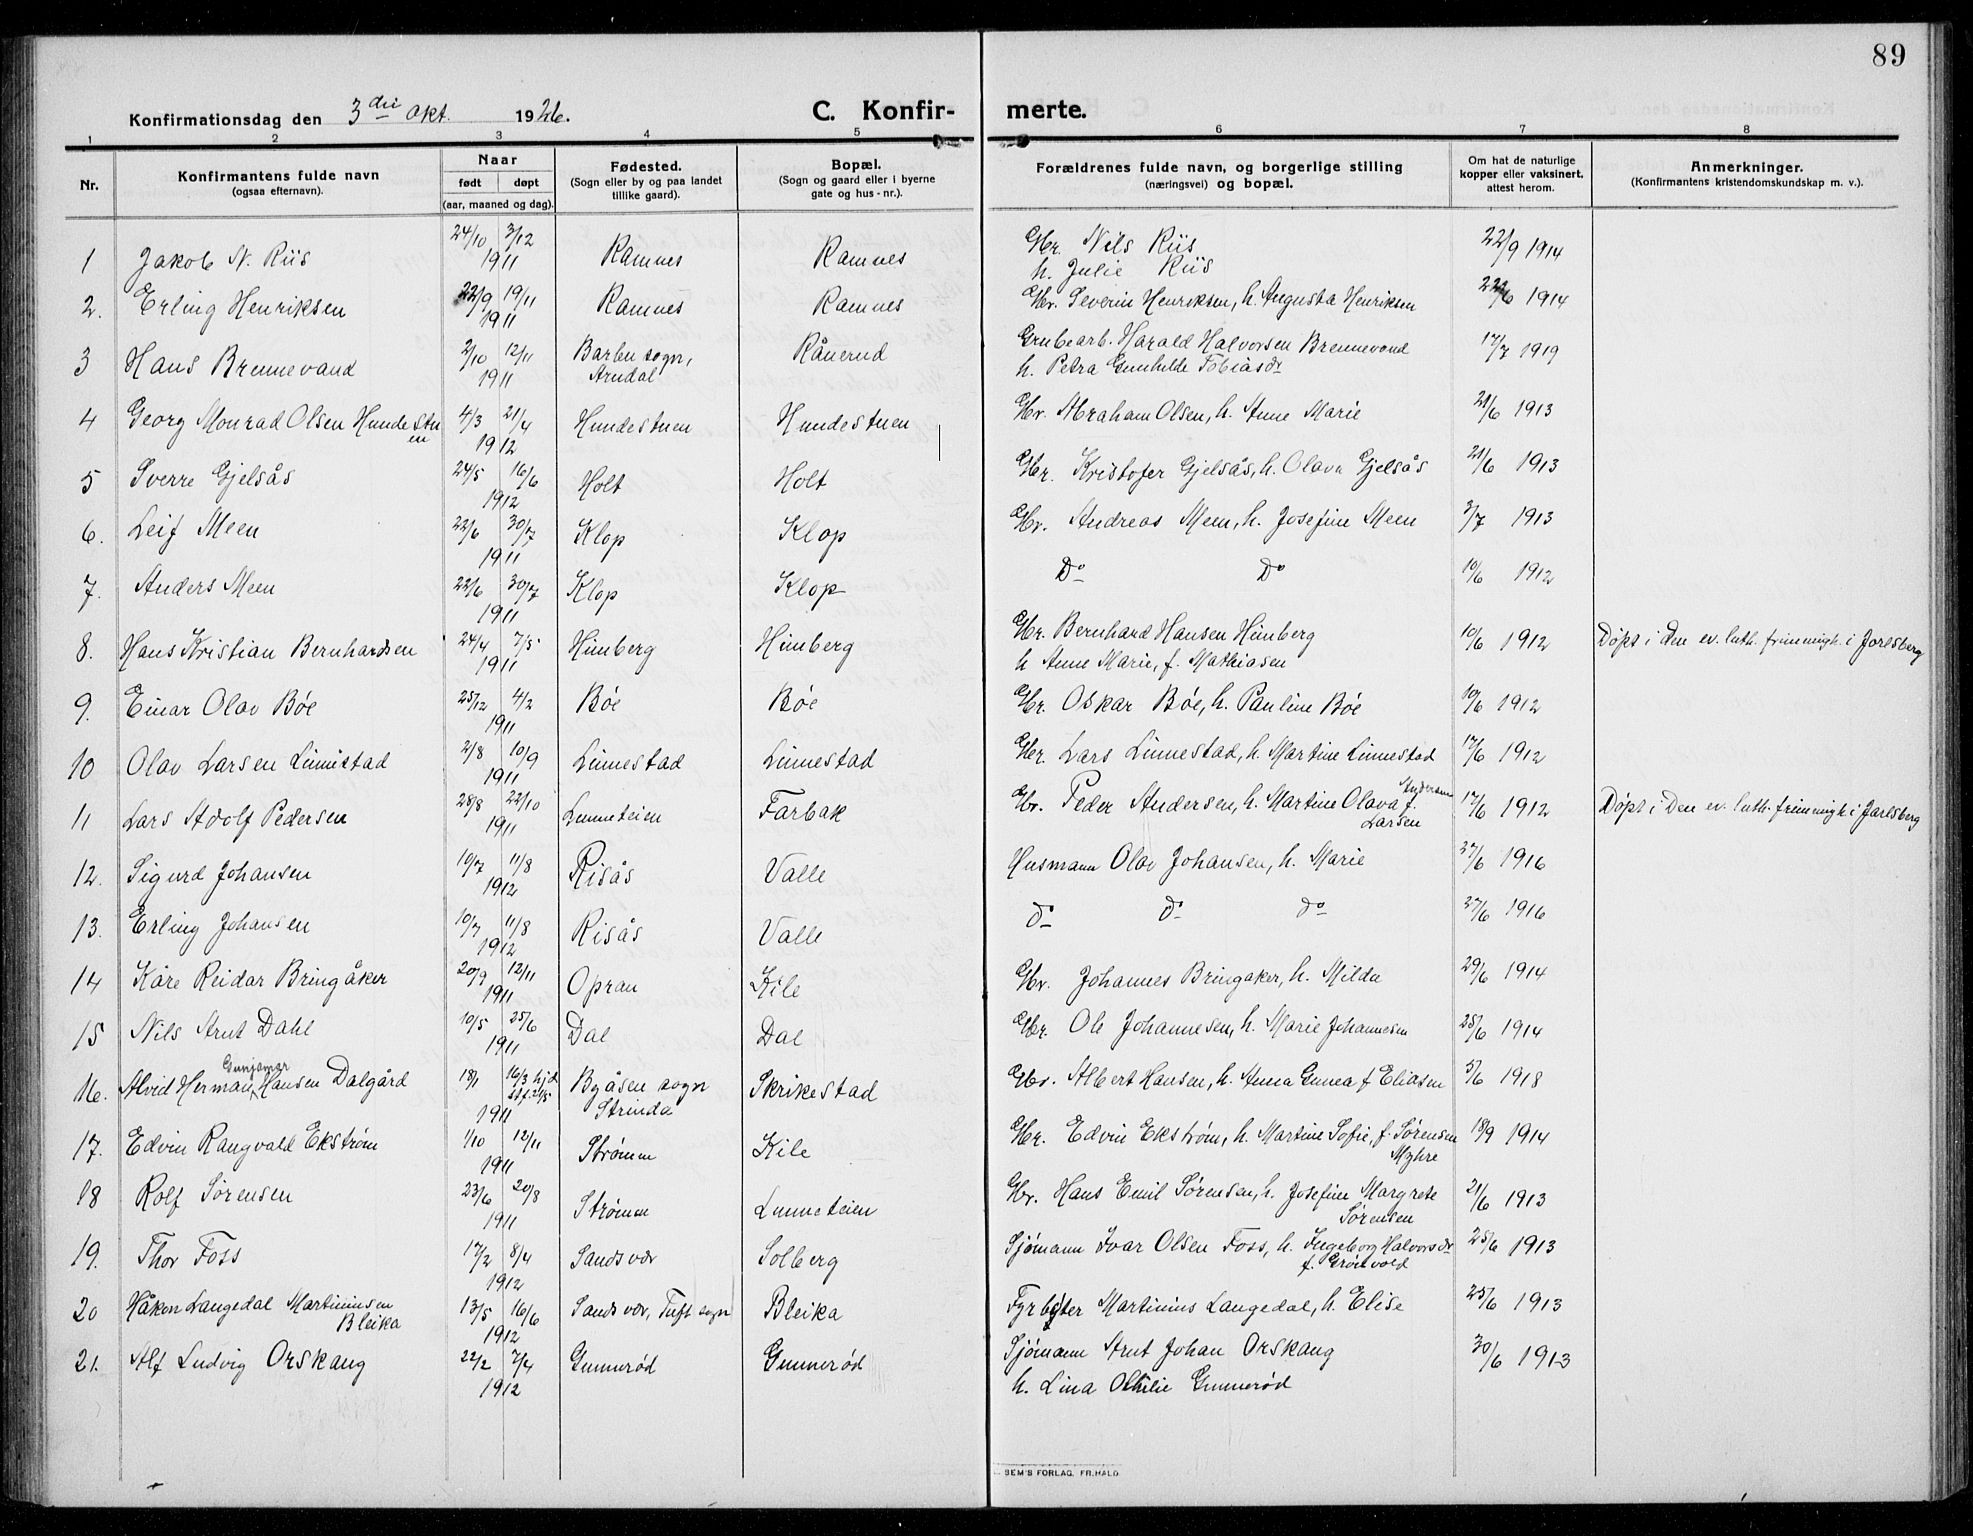 89
Konfirmationsdag den 3die Okt. 1926. C. Konfirmerte.
1 2 3 4 5 6 7 8
Nr. Konfirmantens fulde navn (ogsaa efternavn). Naar født døpt (aar, maaned og dag). Fødested. (Sogn eller by og paa landet tillike gaard). Bopæl. (Sogn og gaard eller i byerne gate og hus-nr.). Forældrenes fulde navn, og borgerlige stilling (næringsvei) og bopæl. Om hat de naturlige kopper eller vaksinert, attest herom. Anmerkninger. (Konfirmantens kristendomskundskap m. v.).
1 Jakob N. Riis 24/10 3/12 1911 Ramnes Ramnes Gbr. Nils Riis h. Julie Riis 22/9 1914
2. Erling Henriksen 22/9 19/11 1911 Ramnes Ramnes Gbr. Severin Henriksen, h. Augusta Henriksen 22/6 1914
3 Hans Brennevand 2/10 12/11 1911 Barbu sogn, Arndal Rånerud Grubearb. Harald Halvorsen Brennevand h. Petra Gunhilde Tobiasdr 17/7 1919
4 Georg Monrad Olsen Hundestuen 4/3 21/4 1912 Hundestuen Hundestuen Gbr. Abraham Olsen, h. Anne Marie 21/6 1913
5 Sverre Gjelsås 24/5 16/6 1912 Holt Holt Gbr. Kristofer Gjelsås, h. Olava Gjelsås 21/6 1913
6. Leif Meen 22/6 30/7 1911 Klop Klop Gbr. Andreas Meen, h. Josefine Meen 3/7 1913
7. Anders Meen 22/6 30/7 1911 Klop Klop Do Do 10/6 1912
8. Hans Kristian Bernhardsen 24/4 7/5 1911 Himberg Himberg Gbr. Bernhard Hansen Himberg h Anne Marie, f. Mathiasen 10/6 1912 Døpt i Den ev. luth. frimenigh. i Jarlsberg
9. Einar Olav Bøe 25/12 4/2 1911 Bøe Bøe Gbr. Oskar Bøe, h. Pauline Bøe 10/6 1912
10 Olav Larsen Linnestad 2/8 10/9 1911 Linnestad Linnestad Gbr. Lars Linnestad, h. Martine Linnestad 17/6 1912
11 Lars Adolf Pedersen 28/8 22/10 1911 Linneteien Farbak Gbr. Peder Andersen, h. Martine Olava Andersen f. Larsen 17/6 1912 Døpt i Den ev. luth. frimenigh. i Jarlsberg
12. Sigurd Johansen 10/7 11/8 1912 Risås Valle Husmann Olav Johansen, h. Marie 27/6 1916
13. Erling Johansen 10/7 11/8 1912 Risås Valle do do do 27/6 1916
14 Kåre Reidar Bringåker 20/9 12/11 1911 Opran Kile Gbr. Johannes Bringaker, h. Milda 29/6 1914
15 Nils Arnt Dahl 10/5 25/6 1911 Dal Dal Gbr. Ole Johannesen, h. Marie Johannesen 25/6 1914
16. Alvid Herman Gunjamar Hansen Dalgård 18/1 16/3 hjd st.f. 21/5 1911 Byåsen sogn Strinda Skrikestad Gbr. Albert Hansen, h. Anna Gunea f Eliasen 5/6 1918
17. Edvin Rangvald Ekstrøm 1/10 12/11 1911 Strømm Kile Gbr. Edvin Ekstrøm, h. Martine Sofie, f. Sørensen Myhre 18/9 1914
18 Rolf Sørensen 23/6 20/8 1911 Strømm Linneteien Gbr. Hans Emil Sørensen, h. Josefine Margrete Sørensen 21/6 1913
19. Thor Foss 17/2 8/4 1912 Sandsvær Solberg Sjømann Ivar Olsen Foss, h. Ingeborg Halvorsdr f. Grønvold 25/6 1913
20 Håkon Langedal Martininsen Bleika 13/5 16/6 1912 Sandsvær, Tuft sogn Bleika Fyrbøter Martinius Langedal, h. Elise 25/6 1913
21. Alf Ludvig Orskaug 22/2 7/4 1912 Gunnerød Gunnerød Sjømann Arnt Johan Orskaug h. Lina Othilie Gunnerød 30/6 1913
SEM'S FORLAG, FR.HALD